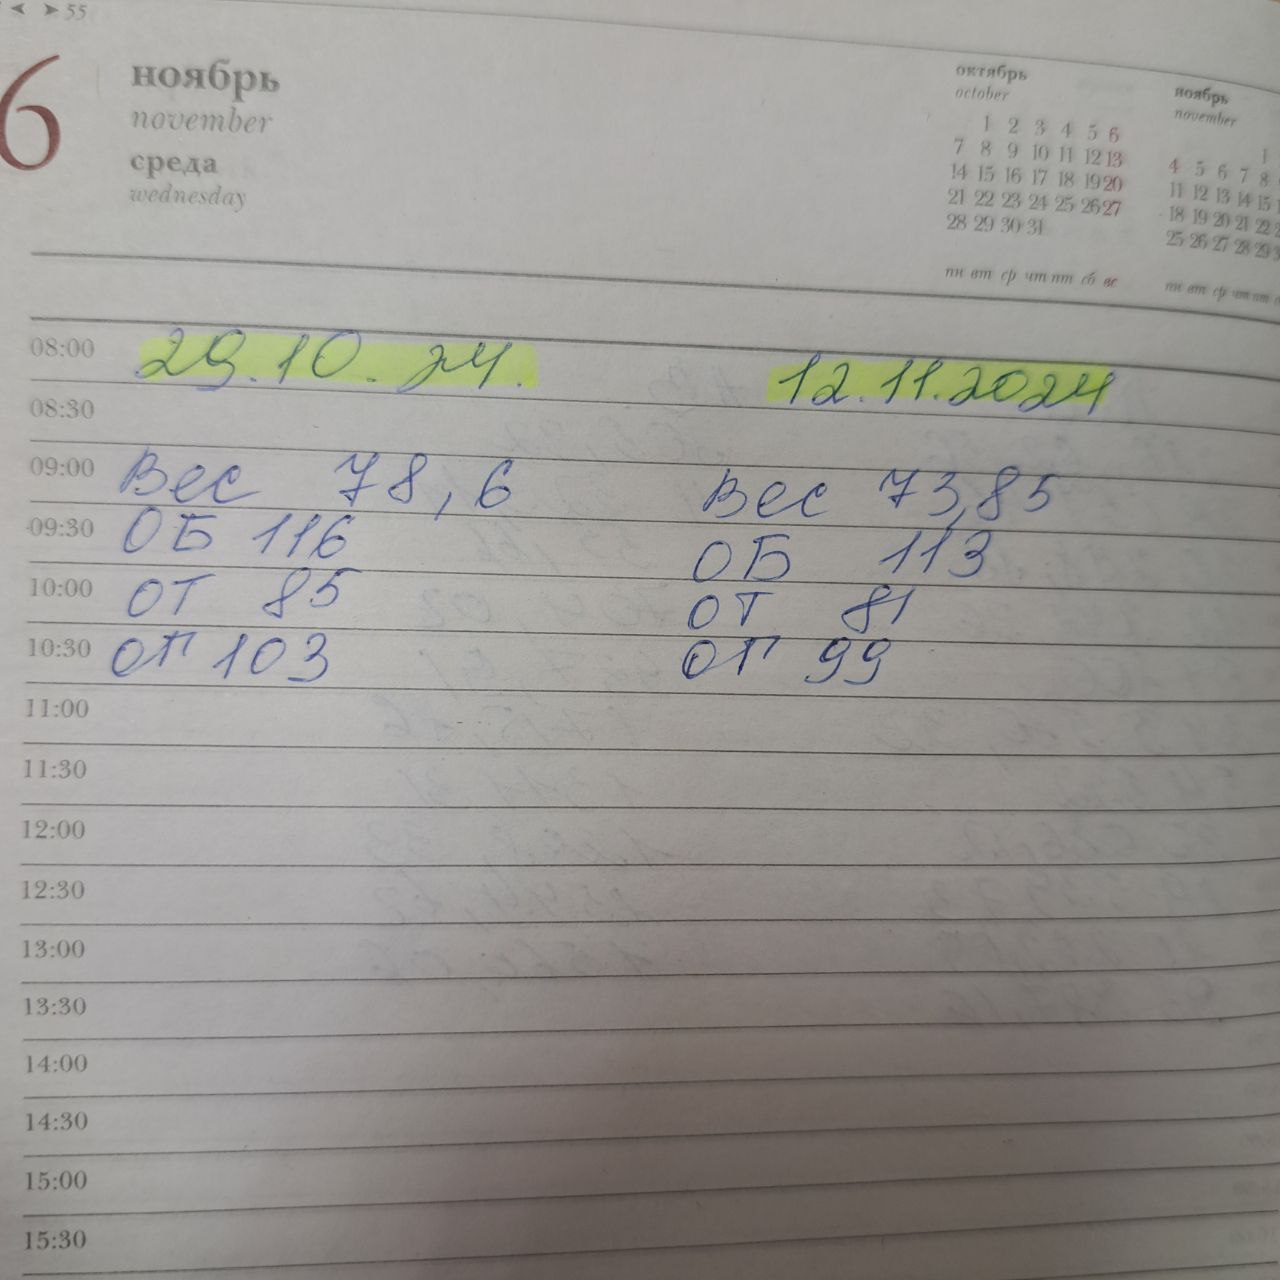 55
6
ноябрь
november
среда
wednesday
октябрь
october
1 2 3 4 5 6
7 8 9 10 11 12 13
14 15 16 17 18 19 20
21 22 23 24 25 26 27
28 29 30 31
пн вт ср чт пт сб вс
ноябрь
november
1
4 5 6 7 8
11 12 13 14 15
18 19 20 21 22
25 26 27 28 29
пн вт ср чт пт
08:00 29.10.24. 12.11.2024
08:30
09:00 Вес 78,6 Вес 73,85
09:30 ОБ 116 ОБ 113
10:00 ОТ 85 ОТ 81
10:30 ОГ 103 ОГ 99
11:00
11:30
12:00
12:30
13:00
13:30
14:00
14:30
15:00
15:30